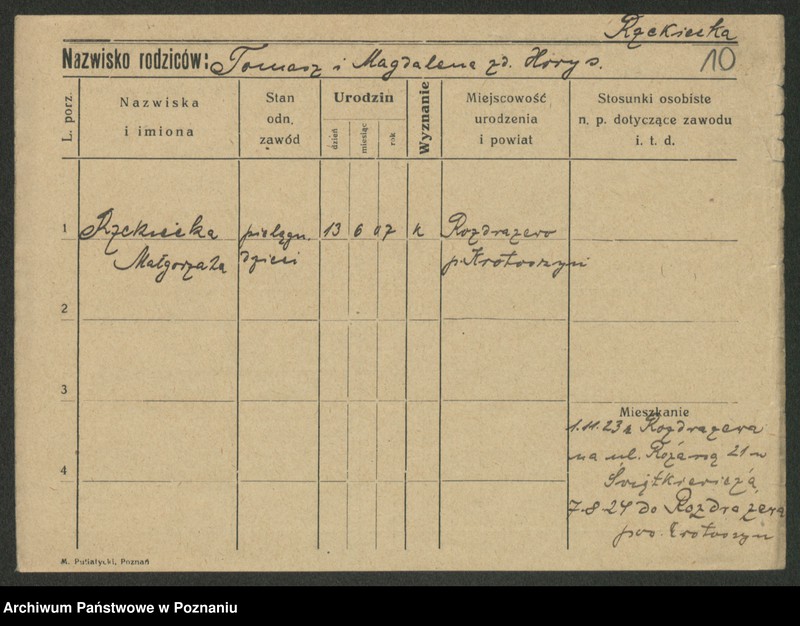 Rzekiecka
10
Nazwisko rodziców: Tomasz i Magdalena zd.
L. porz.
Nazwiska i imiona
Stan odn. zawód
Urodzin
dzień
miesiąc
rok
Wyznanie
Miejscowość urodzenia i powiat
Stosunki osobiste n. p. dotyczące zawodu i. t. d.
1
Małgorzata
pielęgn. dzieci
13 6 07 k
Rozdrażewo
p. Krotoszyn
2
3
4
Mieszkanie
1.11.23 z Rozdrażewa
na ul. Różaną 21 u
7.8.24 do Rozdrażewa
pow. Krotoszyn
M. Putiatycki, Poznań
Archiwum Państwowe w Poznaniu